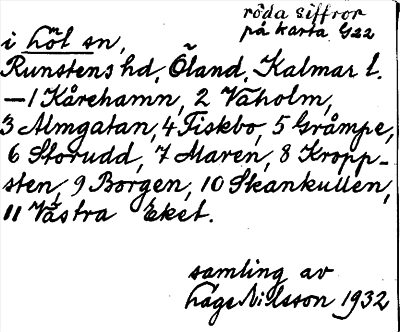 röda siffror
på karta G22
i höl sn,
Runstens hd, Öland, Kalmar l.
—1 Kårehamn, 2 Vaholm,
3 Almgatan, 4 Fiskbo, 5 Gråmpe,
6 Storudd, 7 Maren, 8 Kropp-
sten, 9 Borgen, 10 Skankullen,
11 Västra Eket.
samling av
Hage Nilsson 1932